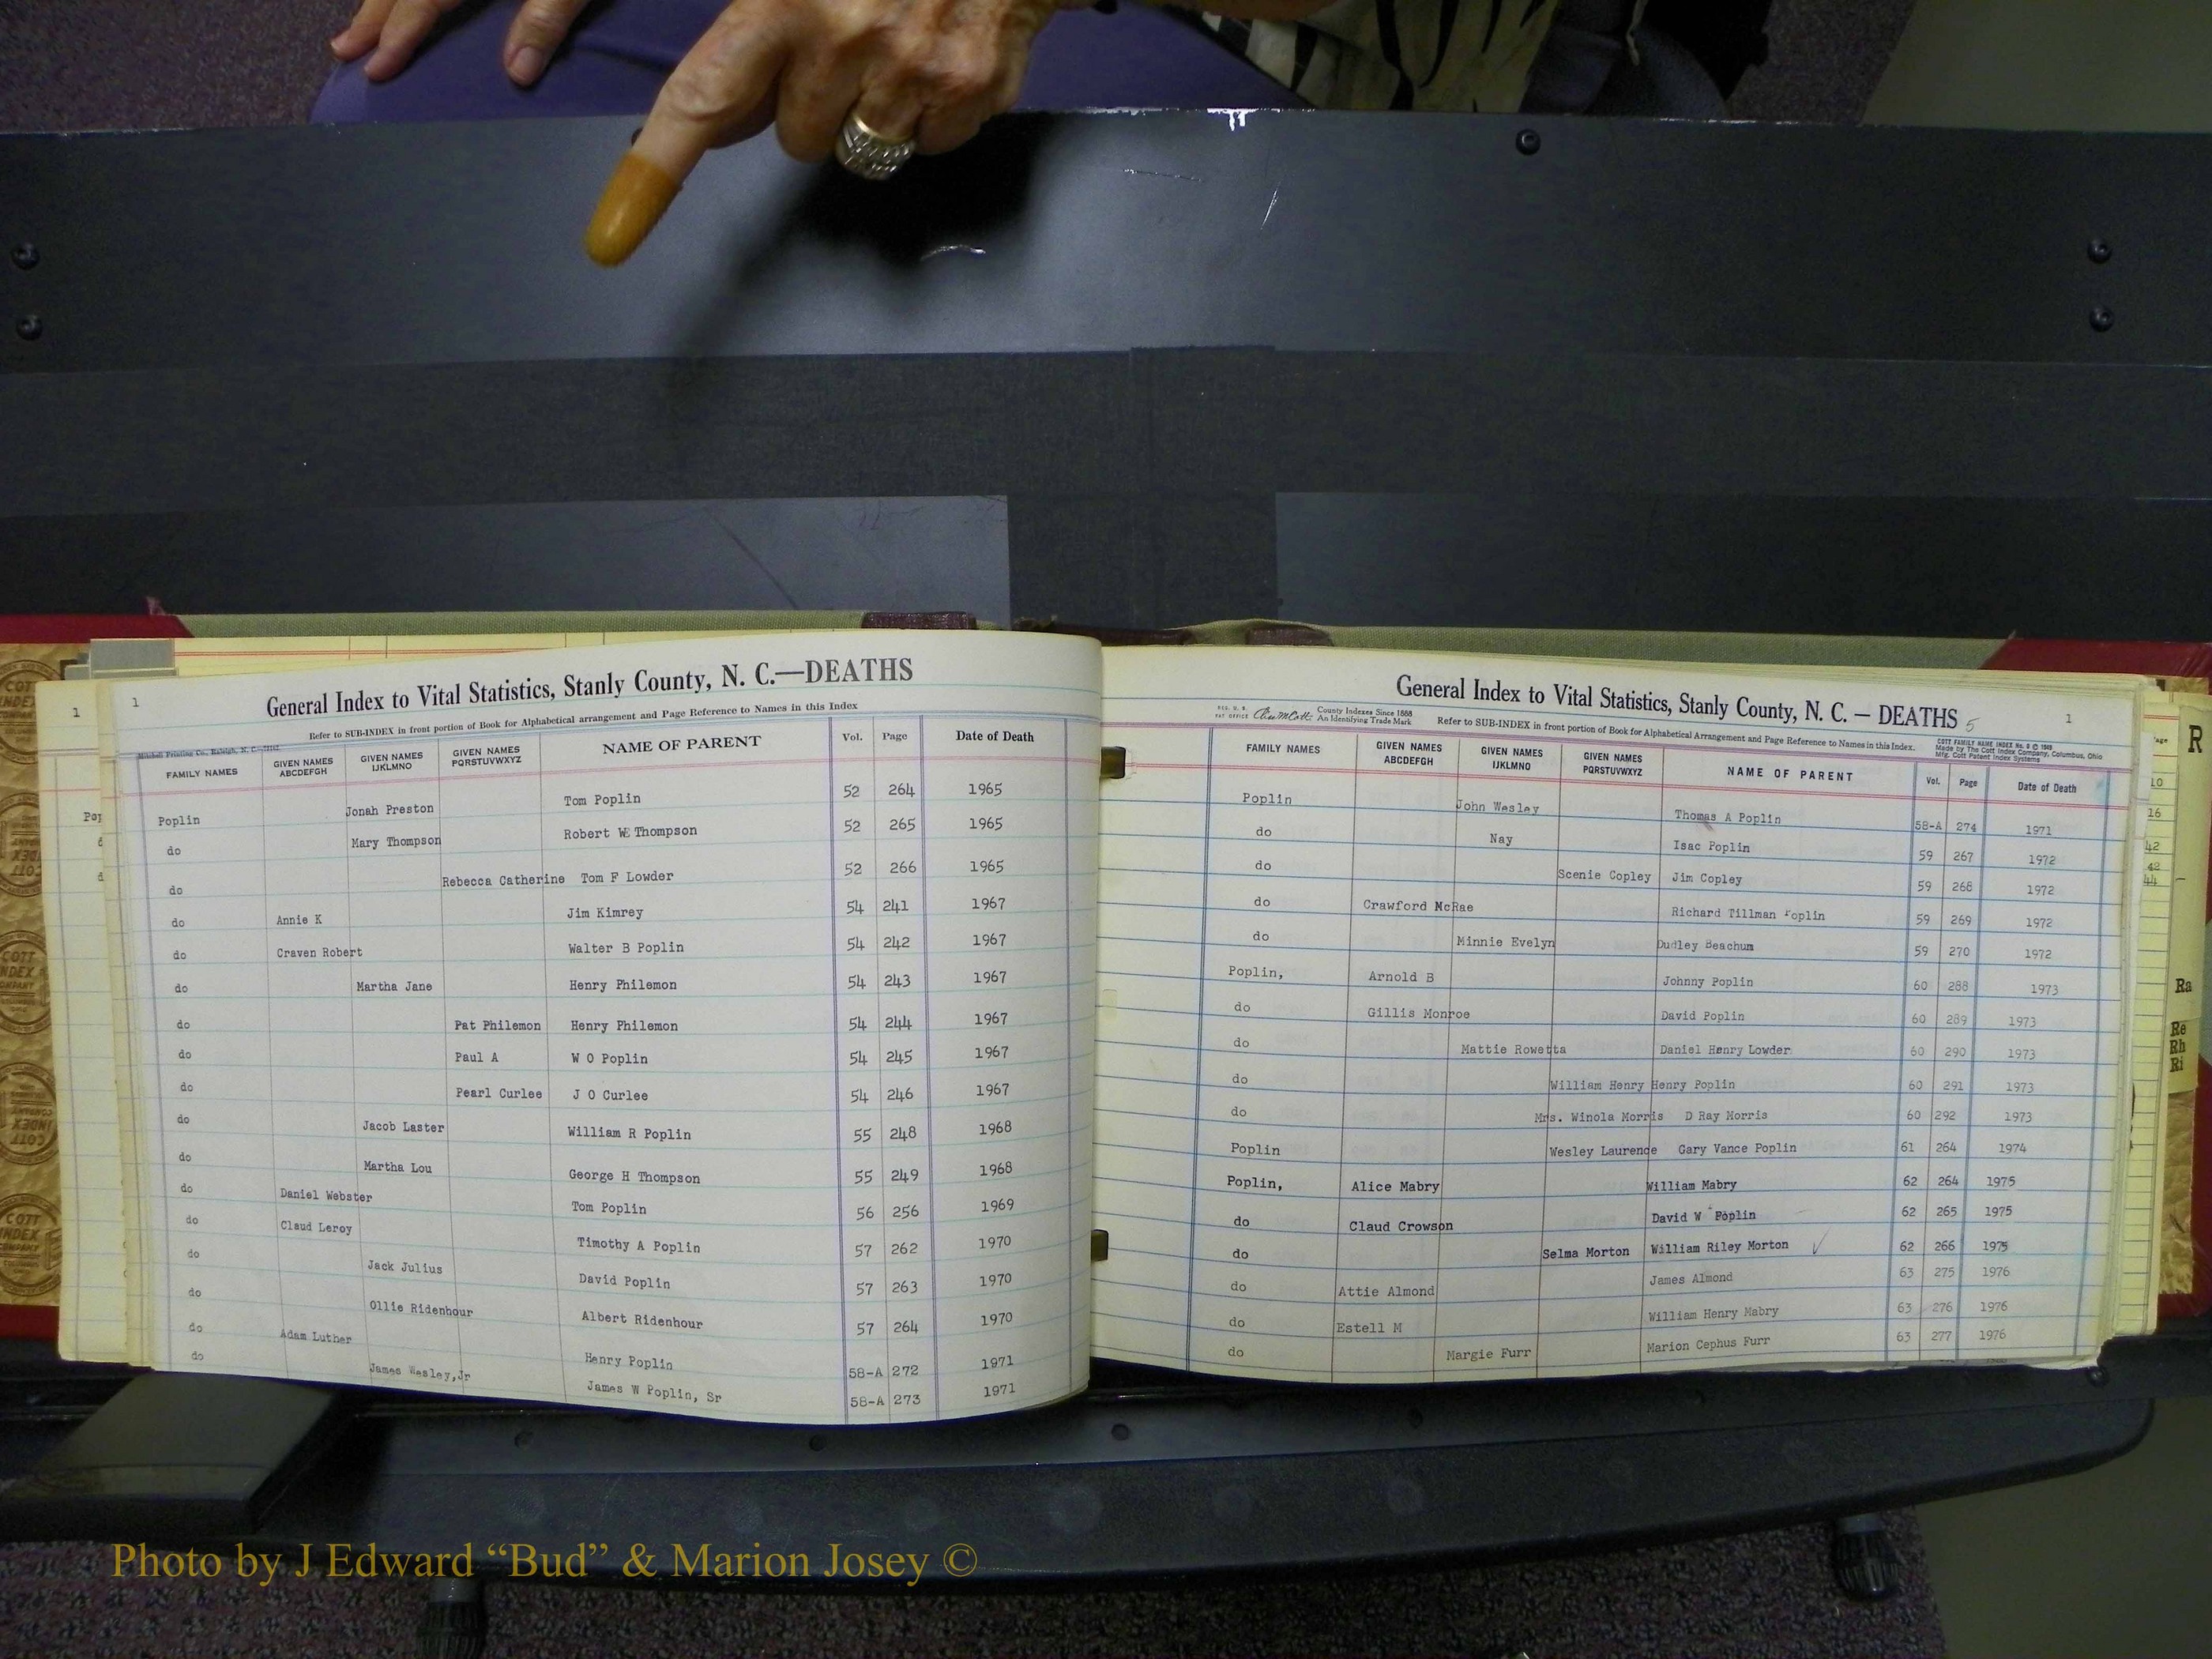 1
General Index to Vital Statistics, Stanly County, N. C.—DEATHS
Refer to SUB-INDEX in front portion of Book for Alphabetical arrangement and Page Reference to Names in this Index
Mitchell Printing Co., Raleigh, N. C.
FAMILY NAMES GIVEN NAMES ABCDEFGH GIVEN NAMES IJKLMNO GIVEN NAMES PQRSTUVWXYZ NAME OF PARENT Vol. Page Date of Death
Poplin Jonah Preston Tom Poplin 52 264 1965
do Mary Thompson Robert WE Thompson 52 265 1965
do Rebecca Catherine Tom F Lowder 52 266 1965
do Annie K Jim Kimrey 54 241 1967
do Craven Robert Walter B Poplin 54 242 1967
do Martha Jane Henry Philemon 54 243 1967
do Pat Philemon Henry Philemon 54 244 1967
do Paul A W O Poplin 54 245 1967
do Pearl Curlee J O Curlee 54 246 1967
do Jacob Laster William R Poplin 55 248 1968
do Martha Lou George H Thompson 55 249 1968
do Daniel Webster Tom Poplin 56 256 1969
do Claud Leroy Timothy A Poplin 57 262 1970
do Jack Julius David Poplin 57 263 1970
do Ollie Ridenhour Albert Ridenhour 57 264 1970
do Adam Luther Henry Poplin 58-A 272 1971
do James Wesley,Jr James W Poplin, Sr 58-A 273 1971
General Index to Vital Statistics, Stanly County, N. C. — DEATHS 5
1
REG. U. S. PAT OFFICE County Indexes Since 1888 An Identifying Trade Mark
Refer to SUB-INDEX in front portion of Book for Alphabetical Arrangement and Page Reference to Names in this Index.
COTT FAMILY NAME INDEX No. 9 © 1949
Made by The Cott Index Company, Columbus, Ohio
Mfg. Cott Patent Index Systems
FAMILY NAMES GIVEN NAMES ABCDEFGH GIVEN NAMES IJKLMNO GIVEN NAMES PQRSTUVWXYZ NAME OF PARENT Vol. Page Date of Death
Poplin John Wesley Thomas A Poplin 58-A 274 1971
do Nay Isac Poplin 59 267 1972
do Scenie Copley Jim Copley 59 268 1972
do Crawford McRae Richard Tillman Poplin 59 269 1972
do Minnie Evelyn Dudley Beachum 59 270 1972
Poplin, Arnold B Johnny Poplin 60 288 1973
do Gillis Monroe David Poplin 60 289 1973
do Mattie Rowetta Daniel Henry Lowder 60 290 1973
do William Henry Henry Poplin 60 291 1973
do Mrs. Winola Morris D Ray Morris 60 292 1973
Poplin Wesley Laurence Gary Vance Poplin 61 264 1974
Poplin, Alice Mabry William Mabry 62 264 1975
do Claud Crowson David W Poplin 62 265 1975
do Selma Morton William Riley Morton 62 266 1975
do Attie Almond James Almond 63 275 1976
do Estell M William Henry Mabry 63 276 1976
do Margie Furr Marion Cephus Furr 63 277 1976
1
R
Ra
Re
Rh
Ri
Photo by J Edward “Bud” & Marion Josey ©